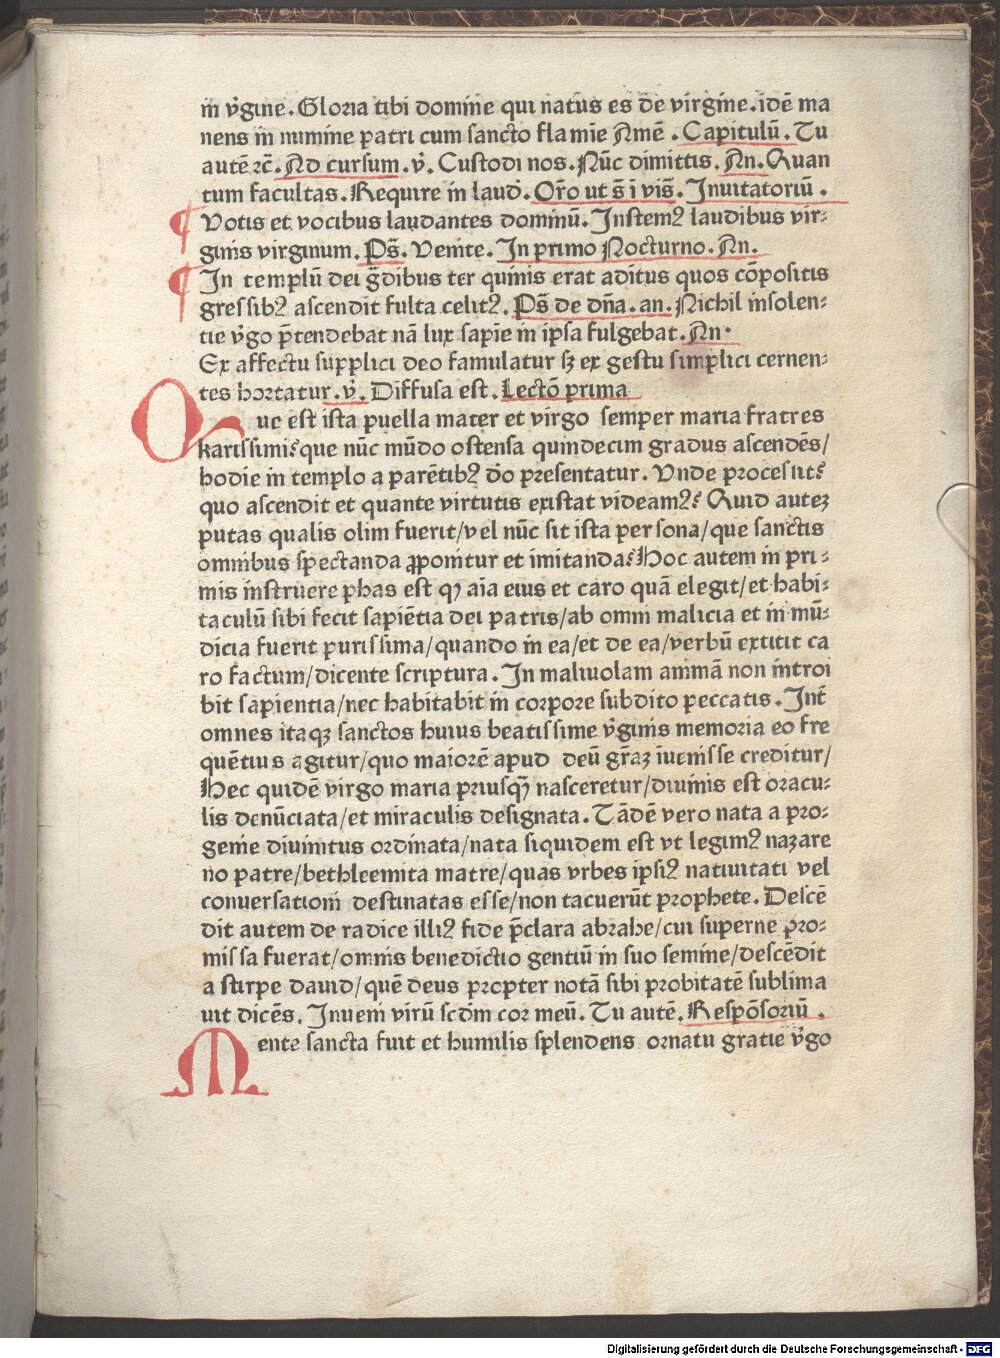 in v̄gine. Gloria tibi domine qui natus es de virgine. idē ma
nens in numine patri cum sancto flamīe Amē. Capitulū. Tu
autē ⁊c̄. Ad cursum. v̄. Custodi nos. Nūc dimittis. An. Quan
tum facultas. Require in laud̄. Or̄o ut s̄ ī vis̄. Inuitatoriū.
Votis et vocibus laudantes dominū. Instemꝰ laudibus vir⸗
ginis virginum. Ps̄. Venite. In primo Nocturno. An.
In templū dei ḡdibus ter quinis erat aditus quos cōpositis
gressibꝰ ascendit fulta celitꝰ. Ps̄ de dn̄a. an. Nichil insolen⸗
tie v̄go p̄tendebat nā lux sapīe in ipsa fulgebat. An.
Ex affectu supplici deo famulatur sꝫ ex gestu simplici cernen⸗
tes hortatur. v̄. Diffusa est. Lectō prima
Que est ista puella mater et virgo semper maria fratres
karissimi? que nūc mūdo ostensa quindecim gradus ascendēs/
hodie in templo a parētibꝰ do presentatur. Vnde processit?
quo ascendit et quante virtutis existat videamꝰ? Quid auteꝫ
putas qualis olim fuerit/vel nūc sit ista persona/que sanctis
omnibus spectanda ꝓponitur et imitanda? Hoc autem in pri⸗
mis instruere phas est ꝙ aīa eius et caro quā elegit/et habi⸗
taculū sibi fecit sapiētia dei patris/ab omni malicia et in mū⸗
dicia fuerit purissima/quando in ea/et de ea/verbū extitit ca
ro factum/dicente scriptura. In maliuolam animā non introi
bit sapientia/nec habitabit in corpore subdito peccatis. Int̄
omnes itaqꝫ sanctos huius beatissime v̄ginis memoria eo fre
quētius agitur/quo maiorē apud deū gr̄aꝫ īuenisse creditur/
Hec quidē virgo maria priusꝙ̄ nasceretur/diuinis est oracu⸗
lis denūciata/et miraculis designata. Tādē vero nata a pro⸗
genie diuinitus ordinata/nata siquidem est vt legimꝰ nazare
no patre/bethleemita matre/quas vrbes ipsiꝰ natiuitati vel
conuersationi destinatas esse/non tacuerūt prophete. Descē
dit autem de radice illiꝰ fide p̄clara abrahe/cui superne pro⸗
missa fuerat/omnis benedictio gentiū in suo semine/descēdit
a stirpe dauid/quē deus propter notā sibi probitatē sublima
uit dicēs. Inueni virū scdm̄ cor meū. Tu autē. Respōsoriū.
Mente sancta fuit et humilis splendens ornatu gratie v̄go
Digitalisierung gefördert durch die Deutsche Forschungsgemeinschaft - DFG